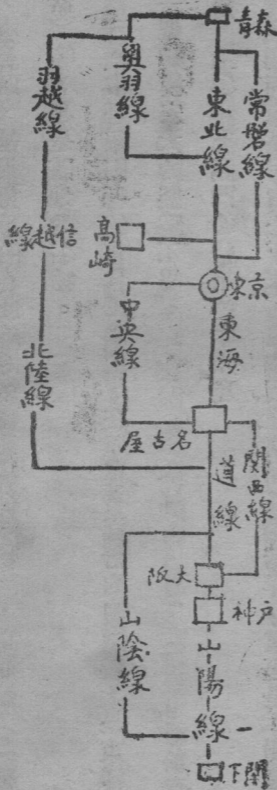 青森
奥羽線
羽越線
東北線
常磐線
線越信
高崎
東京
中央線
東海
北陸線
屋古名
関西線
道線
阪大
神戸
山陰線
山陽線
下関